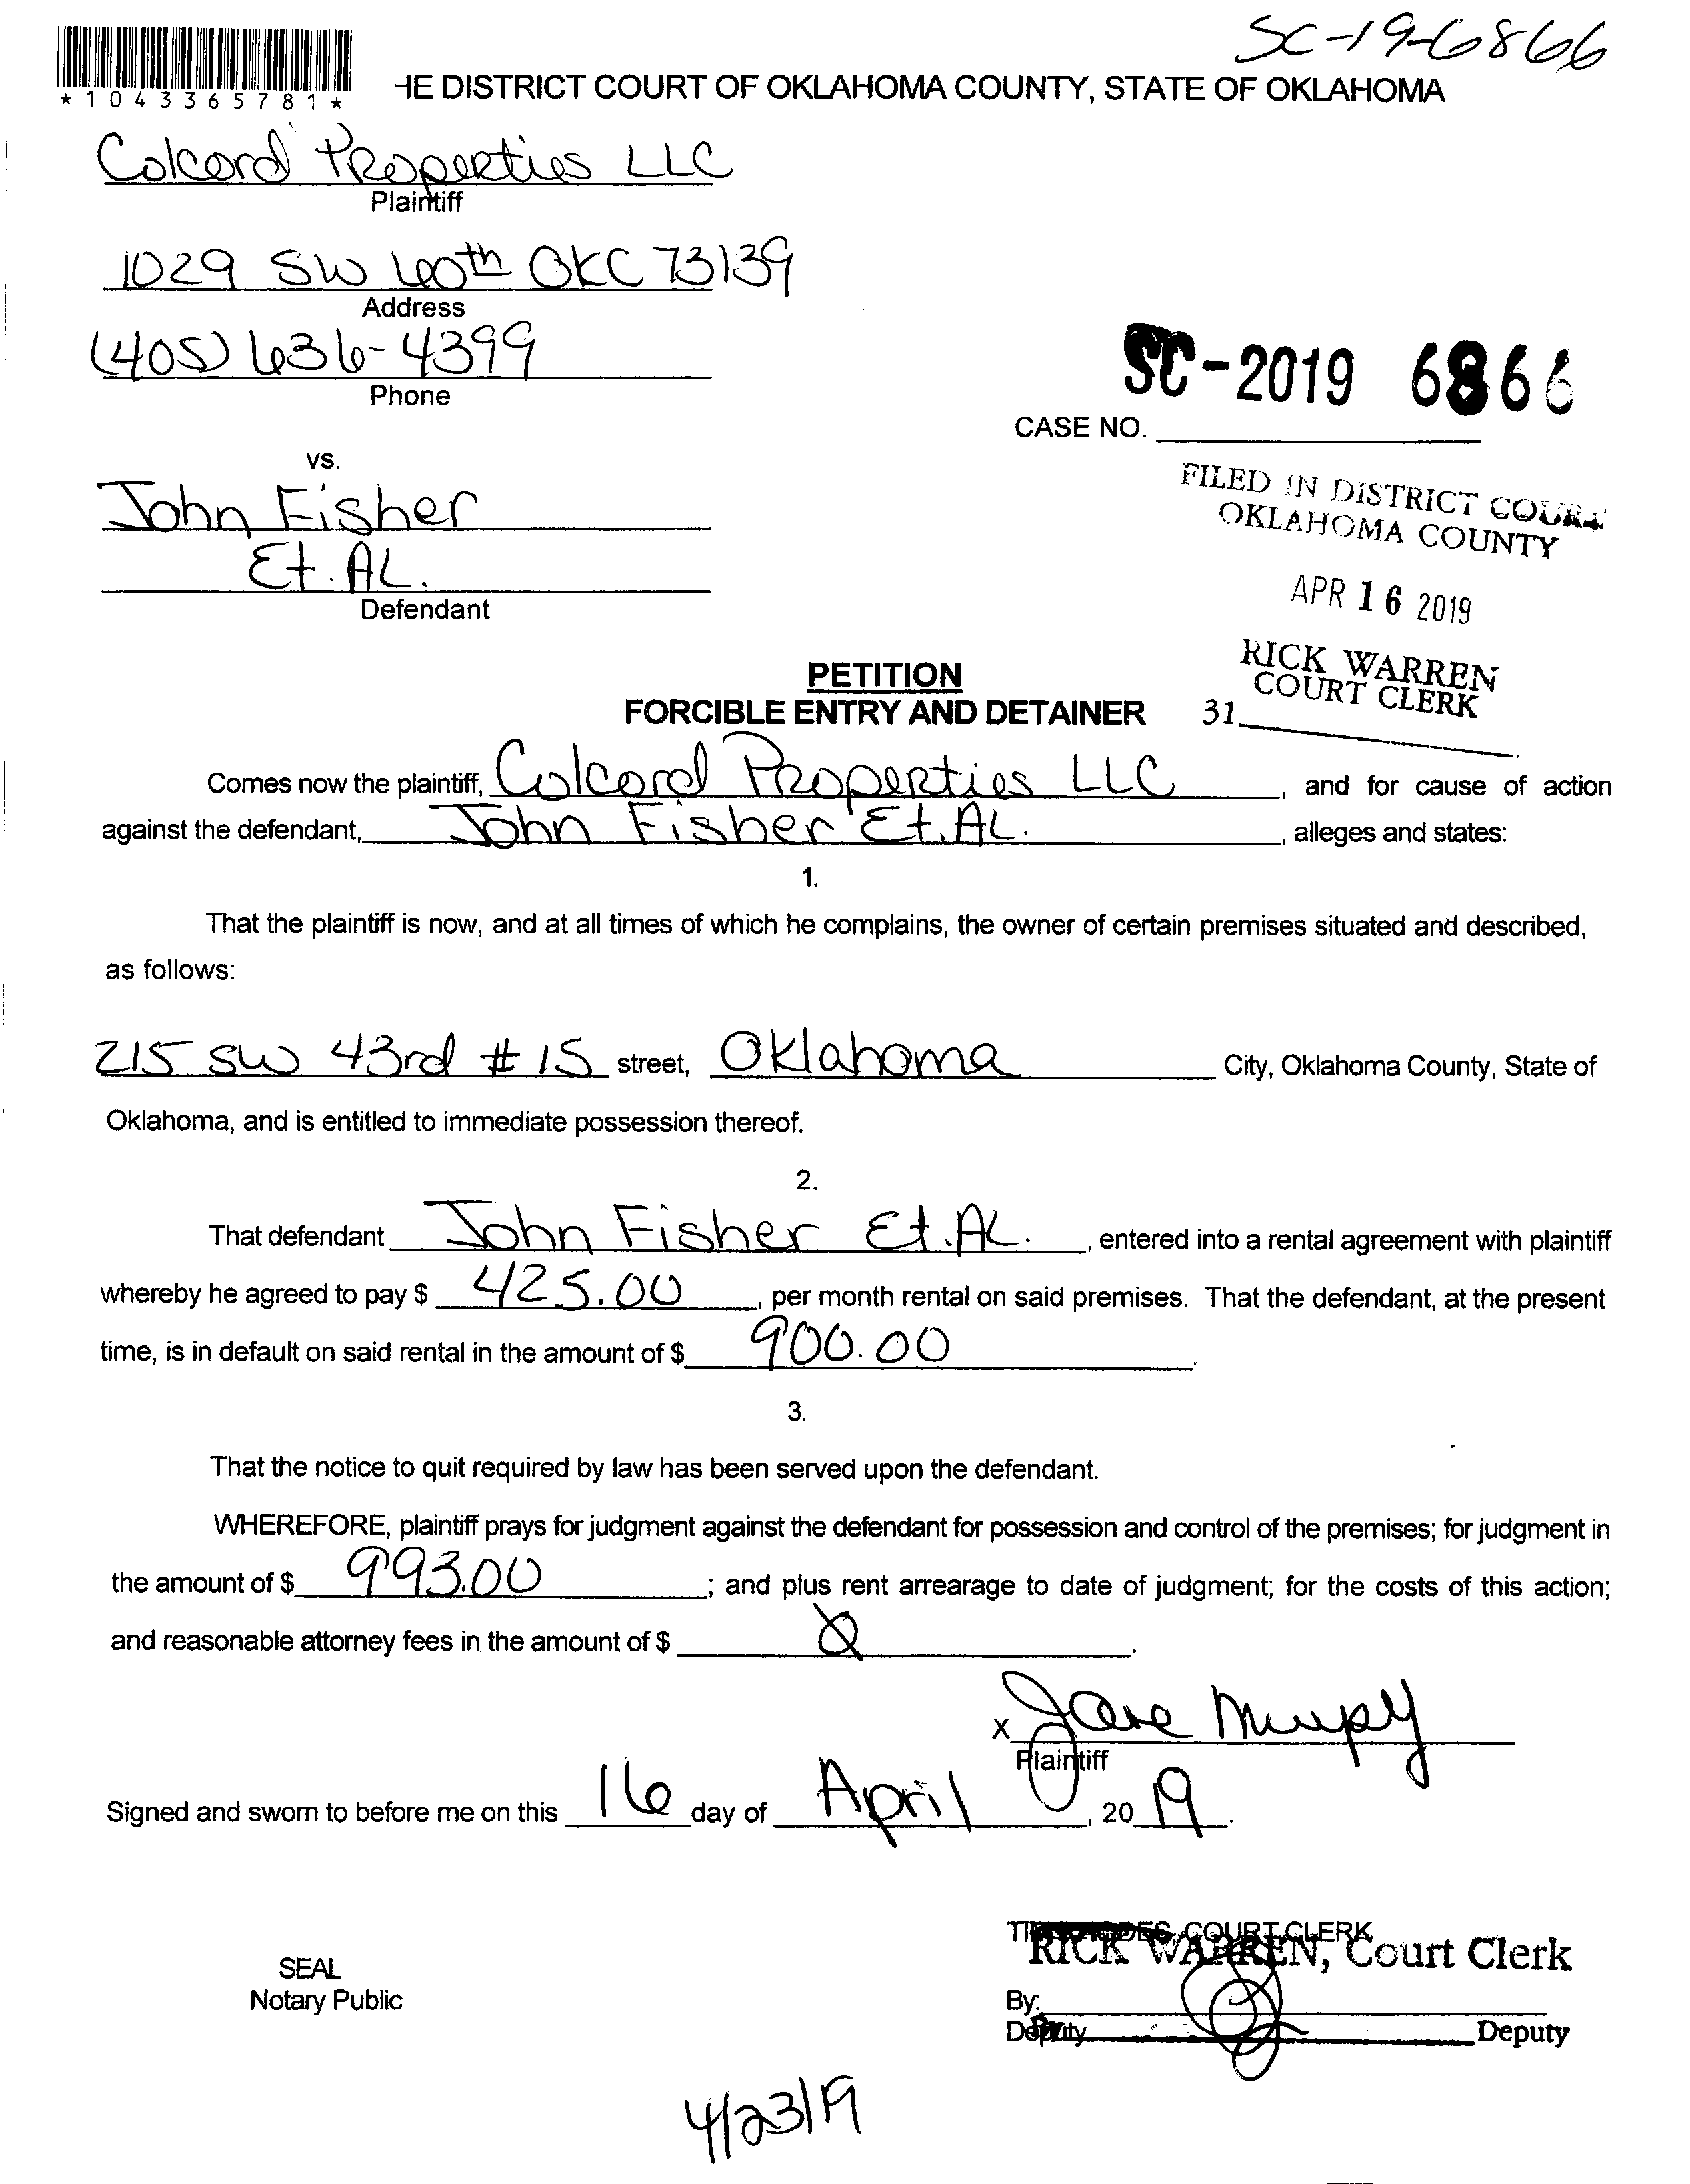 SC-19-6866
*1043365781*
HE DISTRICT COURT OF OKLAHOMA COUNTY, STATE OF OKLAHOMA
Colcord Properties LLC
Plaintiff
1029 SW 60th OKC 73139
Address
(405) 636-4399
Phone
SC-2019 6866
CASE NO.
vs.
FILED IN DISTRICT COURT
OKLAHOMA COUNTY
John Fisher
Et. AL.
Defendant
APR 16 2019
RICK WARREN
COURT CLERK
31
PETITION
FORCIBLE ENTRY AND DETAINER
Comes now the plaintiff, Colcord Properties LLC, and for cause of action
against the defendant, John Fisher Et. AL., alleges and states:
1.
That the plaintiff is now, and at all times of which he complains, the owner of certain premises situated and described,
as follows:
215 SW 43rd # 15 street, Oklahoma City, Oklahoma County, State of
Oklahoma, and is entitled to immediate possession thereof.
2.
That defendant John Fisher Et. AL., entered into a rental agreement with plaintiff
whereby he agreed to pay $ 425.00, per month rental on said premises. That the defendant, at the present
time, is in default on said rental in the amount of $ 900.00.
3.
That the notice to quit required by law has been served upon the defendant.
WHEREFORE, plaintiff prays for judgment against the defendant for possession and control of the premises; for judgment in
the amount of $ 993.00; and plus rent arrearage to date of judgment; for the costs of this action;
and reasonable attorney fees in the amount of $ 0.
x Jare Murpy
Plaintiff
Signed and sworn to before me on this 16 day of April, 2019.
COURT CLERK
RICK WARREN, Court Clerk
SEAL
Notary Public
By:
Deputy
By Deputy
4/23/19